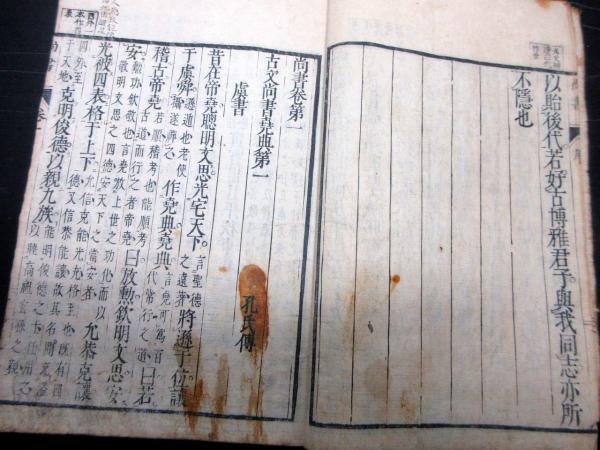 以貽後代若好古博雅君子與我同志亦所
不隱也
尚書卷第一
古文尚書堯典第一
虞書
孔氏傳
昔在帝堯聰明文思光宅天下言聖德之遠著將遜于位讓
于虞舜遜遁也老使攝遂禪之作堯典堯典言堯可爲百代常行之道曰若
稽古帝堯若順稽考也能順考古道而行之者帝堯曰放勳欽明文思安
安勳功欽敬也言堯放上世之功化而以敬明文思之四德安天下之當安者允恭克讓
光被四表格于上下允信克能光充格至也既有四德又信恭能讓故其名聞充溢四外至于天地
克明俊德以親九族能明俊德之士任用之以睦高祖玄孫之親